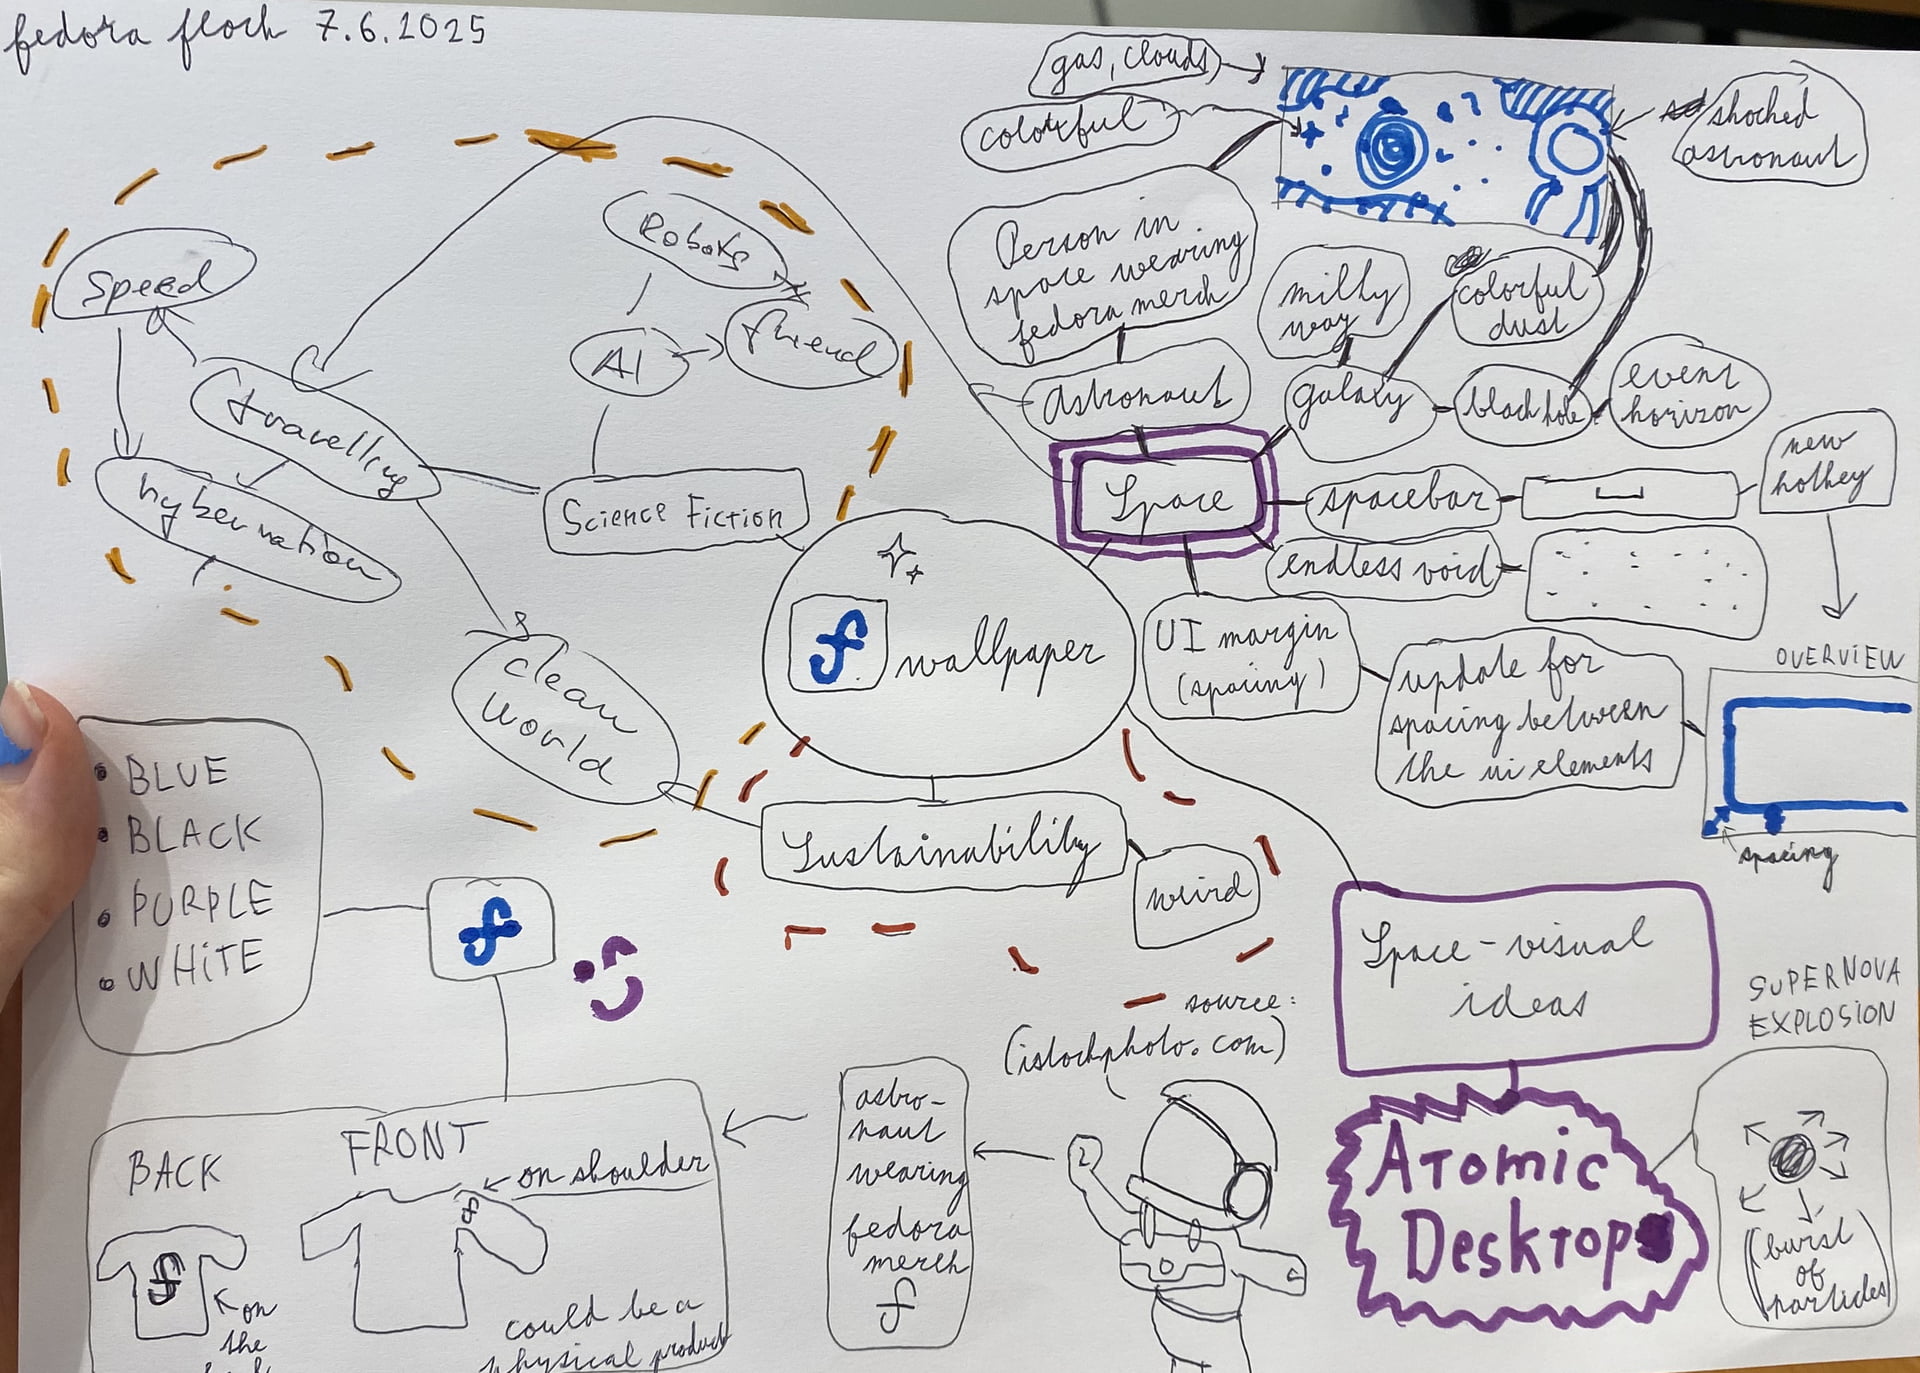 fedora flock 7.6.2025
gas, clouds
colorful
shocked
astronaut
Person in
space wearing
fedora merch
milky
way
colorful
dust
Robots
Speed
AI
friend
travelling
Astronaut
galaxy
black hole
event
horizon
new
hotkey
hybernation
Science Fiction
Space
spacebar
endless void
wallpaper
UI margin
(spacing)
update for
spacing between
the ui elements
OVERVIEW
spacing
clean
World
• BLUE
• BLACK
• PURPLE
• WHITE
Sustainability
weird
Space-visual
ideas
SUPERNOVA
EXPLOSION
source:
(istockphoto.com)
ATOMIC
DESKTOP
(burst
of
particles)
astro-
naut
wearing
fedora
merch
BACK
FRONT
on shoulder
on
the
could be a
physical product